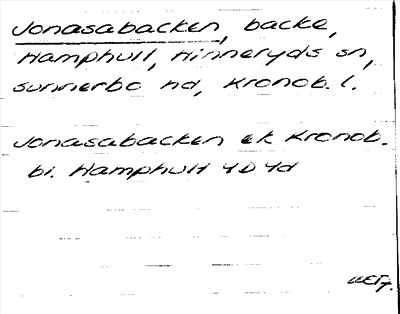 Jonasabacken, backe,
Hamphult, Hinneryds sn,
Sunnerbo hd, Kronob. l.
Jonasabacken ek Kronob.
bl. Hamphult 4D4d